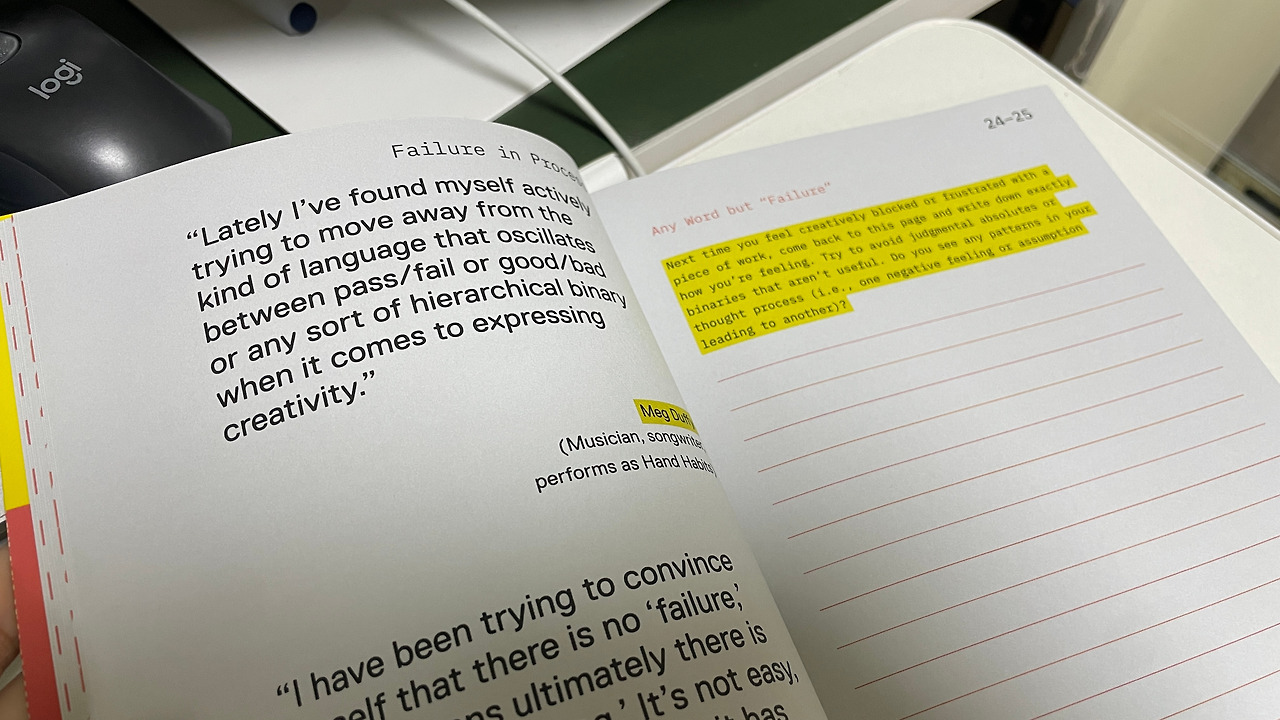 logi
Failure in
“Lately I’ve found myself actively
trying to move away from the
kind of language that oscillates
between pass/fail or good/bad
or any sort of hierarchical binary
when it comes to expressing
creativity.”
Meg
(Musician,
performs as Hand Habits
“I have been trying to convince
that there is no ‘failure,’
ultimately there is
It’s not easy,
has
24–25
Any Word but “Failure”
Next time you feel creatively blocked or frustrated with a
piece of work, come back to this page and write down exactly
how you’re feeling. Try to avoid judgmental absolutes or
binaries that aren’t useful. Do you see any patterns in your
thought process (i.e., one negative feeling or assumption
leading to another)?